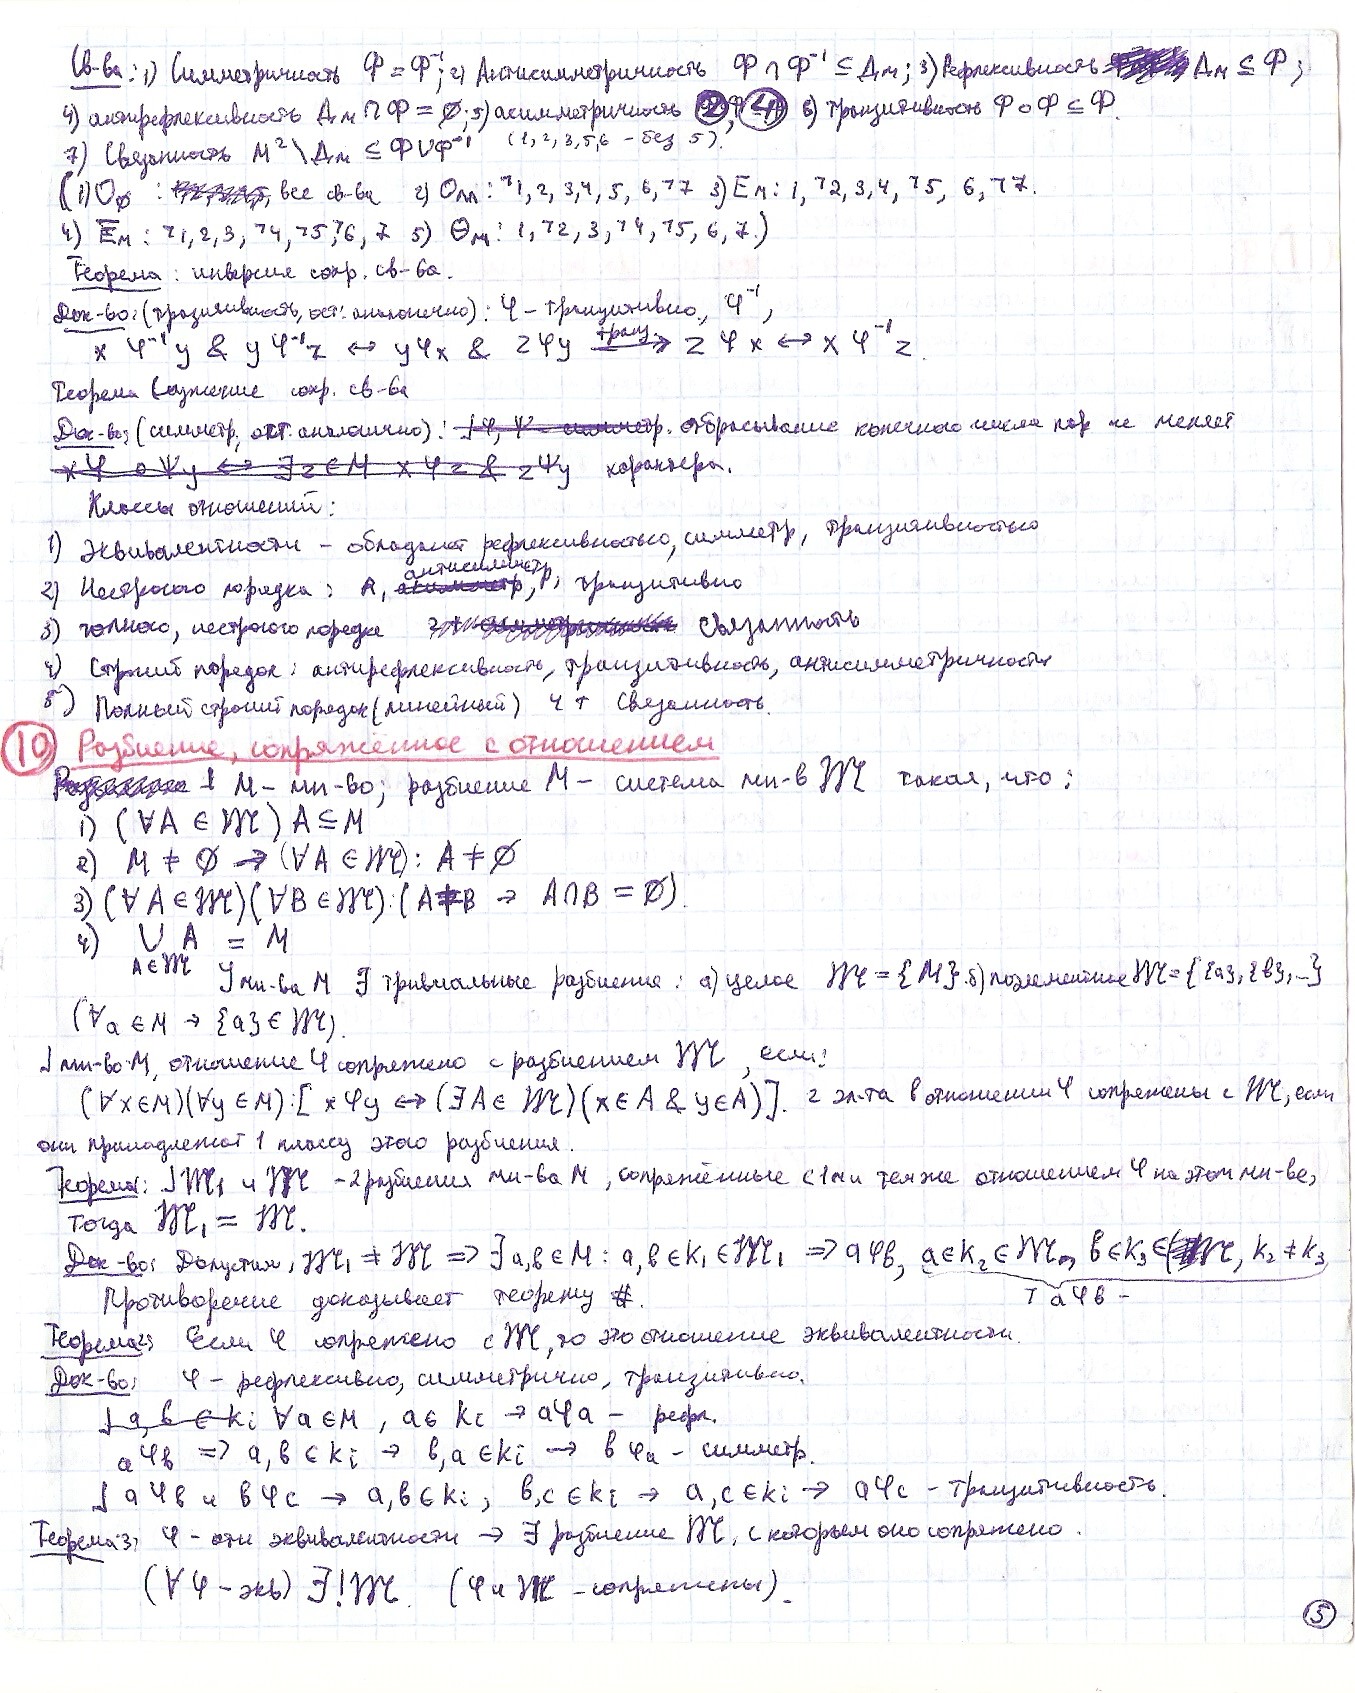 Св-ва: 1) Симметричность Φ = Φ⁻¹; 2) Антисимметричность Φ ∩ Φ⁻¹ ⊆ Δм; 3) Рефлексивность Δм ⊆ Φ;
4) антирефлексивность Δм ∩ Φ = ∅; 5) асимметричность 2, 4 6) транзитивность Φ ∘ Φ ⊆ Φ.
7) Связанность M² \ Δм ⊆ Φ ∪ Φ⁻¹ (1, 2, 3, 5, 6 – без 5).
(1) O∅ : все св-ва 2) Oм : ¬1, 2, 3, 4, 5, 6, ¬7 3) Eм : 1, ¬2, 3, 4, ¬5, 6, ¬7.
4) Eм : ¬1, 2, 3, ¬4, ¬5, ¬6, 7 5) Θм : 1, ¬2, 3, ¬4, ¬5, 6, 7.)
Теорема: инверсия сохр. св-ва.
Док-во: (транзитивность, ост. аналогично): φ – транзитивно, φ⁻¹,
x φ⁻¹ y & y φ⁻¹ z ↔ y φ x & z φ y →(транз.) z φ x ↔ x φ⁻¹ z.
Теорема Сужение сохр. св-ва
Док-во: (симметр, ост. аналогично): отбрасывание конечного числа пар не меняет
x φ ∘ ψ y ↔ ∃ z ∈ M x φ z & z ψ y характера.
Классы отношений:
1) Эквивалентности – обладают рефлексивностью, симметр, транзитивностью
2) Нестрогого порядка: A, антисимметр, р, транзитивно
3) полного, нестрогого порядка связанность
4) Строгий порядок: антирефлексивность, транзитивность, антисимметричность
5) Полный строгий порядок (линейный) 4 + Связанность.
10 Разбиение, сопряжённое с отношением
M – мн-во; разбиение M – система мн-в 𝔐 такая, что:
1) (∀A ∈ 𝔐) A ⊆ M
2) M ≠ ∅ → (∀A ∈ 𝔐): A ≠ ∅
3) (∀A ∈ 𝔐)(∀B ∈ 𝔐): (A ≠ B → A ∩ B = ∅).
4) ∪ A = M
A ∈ 𝔐
мн-ва M ∃ тривиальные разбиения: а) целое 𝔐 = {M} б) поэлементное 𝔐 = {{a}, {b}, …}
(∀a ∈ M → {a} ∈ 𝔐).
мн-во M, отношение φ сопряжено с разбиением 𝔐, если:
(∀x ∈ M)(∀y ∈ M): [x φ y ↔ (∃A ∈ 𝔐)(x ∈ A & y ∈ A)]. 2 эл-та в отношении φ сопряжены с 𝔐, если
они принадлежат 1 классу этого разбиения.
Теорема1: 𝔐₁ и 𝔐 – 2 разбиения мн-ва M, сопряжённые с 1 и тем же отношением φ на этом мн-ве,
тогда 𝔐₁ = 𝔐.
Док-во: Допустим, 𝔐₁ ≠ 𝔐 => ∃ a, b ∈ M : a, b ∈ K₁ ∈ 𝔐₁ => a φ b, a ∈ K₂ ∈ 𝔐, b ∈ K₃ ∈ 𝔐, K₂ ≠ K₃
¬ a φ b –
Противоречие доказывает теорему #.
Теорема2: Если φ сопряжено с 𝔐, то это отношение эквивалентности.
Док-во: φ – рефлексивно, симметрично, транзитивно.
a, b ∈ Ki ∀a ∈ M, a ∈ Ki → a φ a – рефл.
a φ b => a, b ∈ Ki → b, a ∈ Ki → b φ a – симметр.
a φ b и b φ c → a, b ∈ Ki, b, c ∈ Ki → a, c ∈ Ki → a φ c – транзитивность.
Теорема3: φ – отн эквивалентности → ∃ разбиение 𝔐, с которым оно сопряжено.
(∀φ – экв) ∃! 𝔐 (φ и 𝔐 – сопряжены).
5